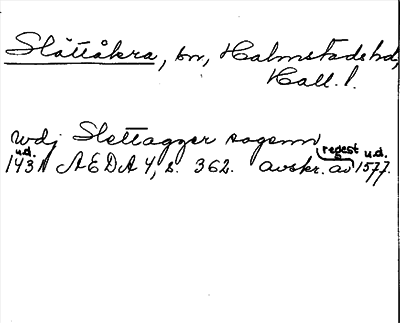 Slättåkra, sn, Halmstads hd,
Hall. l.
wdj Slettagger sogenn
u.d. regest u.d.
1431 AEDA 4, s. 362. avskr. av 1577.